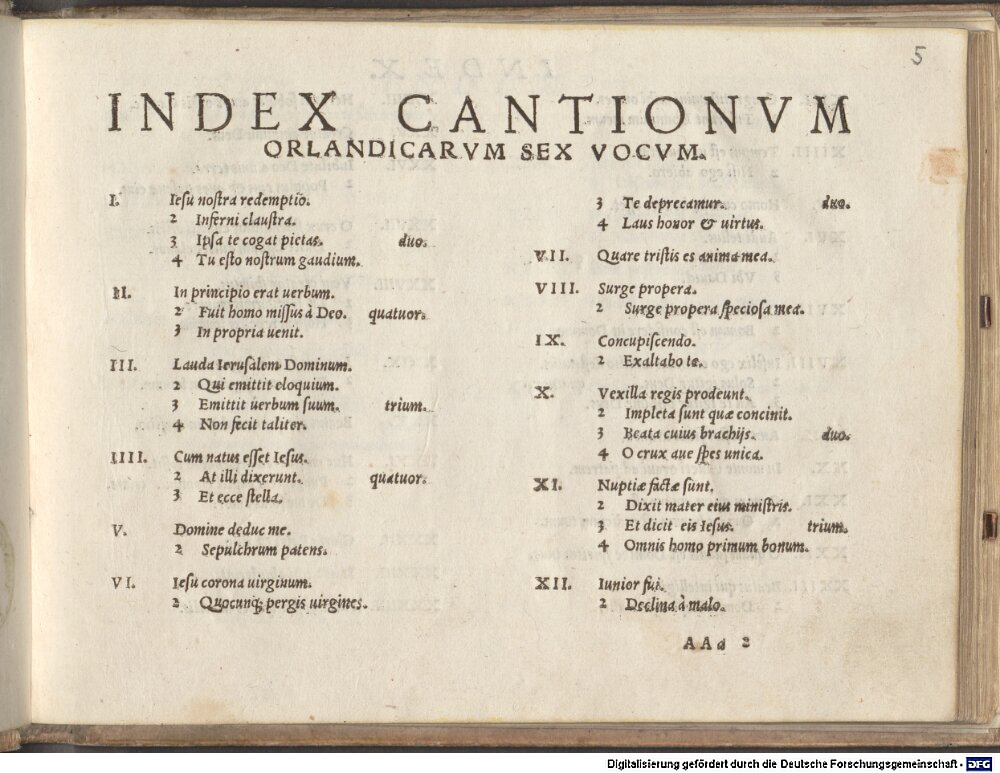 5
INDEX CANTIONVM
ORLANDICARVM SEX VOCVM.
I. Iesu nostra redemptio.
2 Inferni claustra.
3 Ipsa te cogat pietas. duo.
4 Tu esto nostrum gaudium.
II. In principio erat uerbum.
2 Fuit homo missus à Deo. quatuor.
3 In propria uenit.
III. Lauda Ierusalem Dominum.
2 Qui emittit eloquium.
3 Emittit uerbum suum. trium.
4 Non fecit taliter.
IIII. Cum natus esset Iesus.
2 At illi dixerunt. quatuor.
3 Et ecce stella.
V. Domine deduc me.
2 Sepulchrum patens.
VI. Iesu corona uirginum.
2 Quocunq; pergis uirgines.
3 Te deprecamur. duo.
4 Laus honor & uirtus.
VII. Quare tristis es anima mea.
VIII. Surge propera.
2 Surge propera speciosa mea.
IX. Concupiscendo.
2 Exaltabo te.
X. Vexilla regis prodeunt.
2 Impleta sunt quæ concinit.
3 Beata cuius brachijs. duo.
4 O crux aue spes unica.
XI. Nuptiæ factæ sunt.
2 Dixit mater eius ministris.
3 Et dicit eis Iesus. trium.
4 Omnis homo primum bonum.
XII. Iunior fui.
2 Declina à malo.
AAa 2
Digitalisierung gefördert durch die Deutsche Forschungsgemeinschaft - DFG